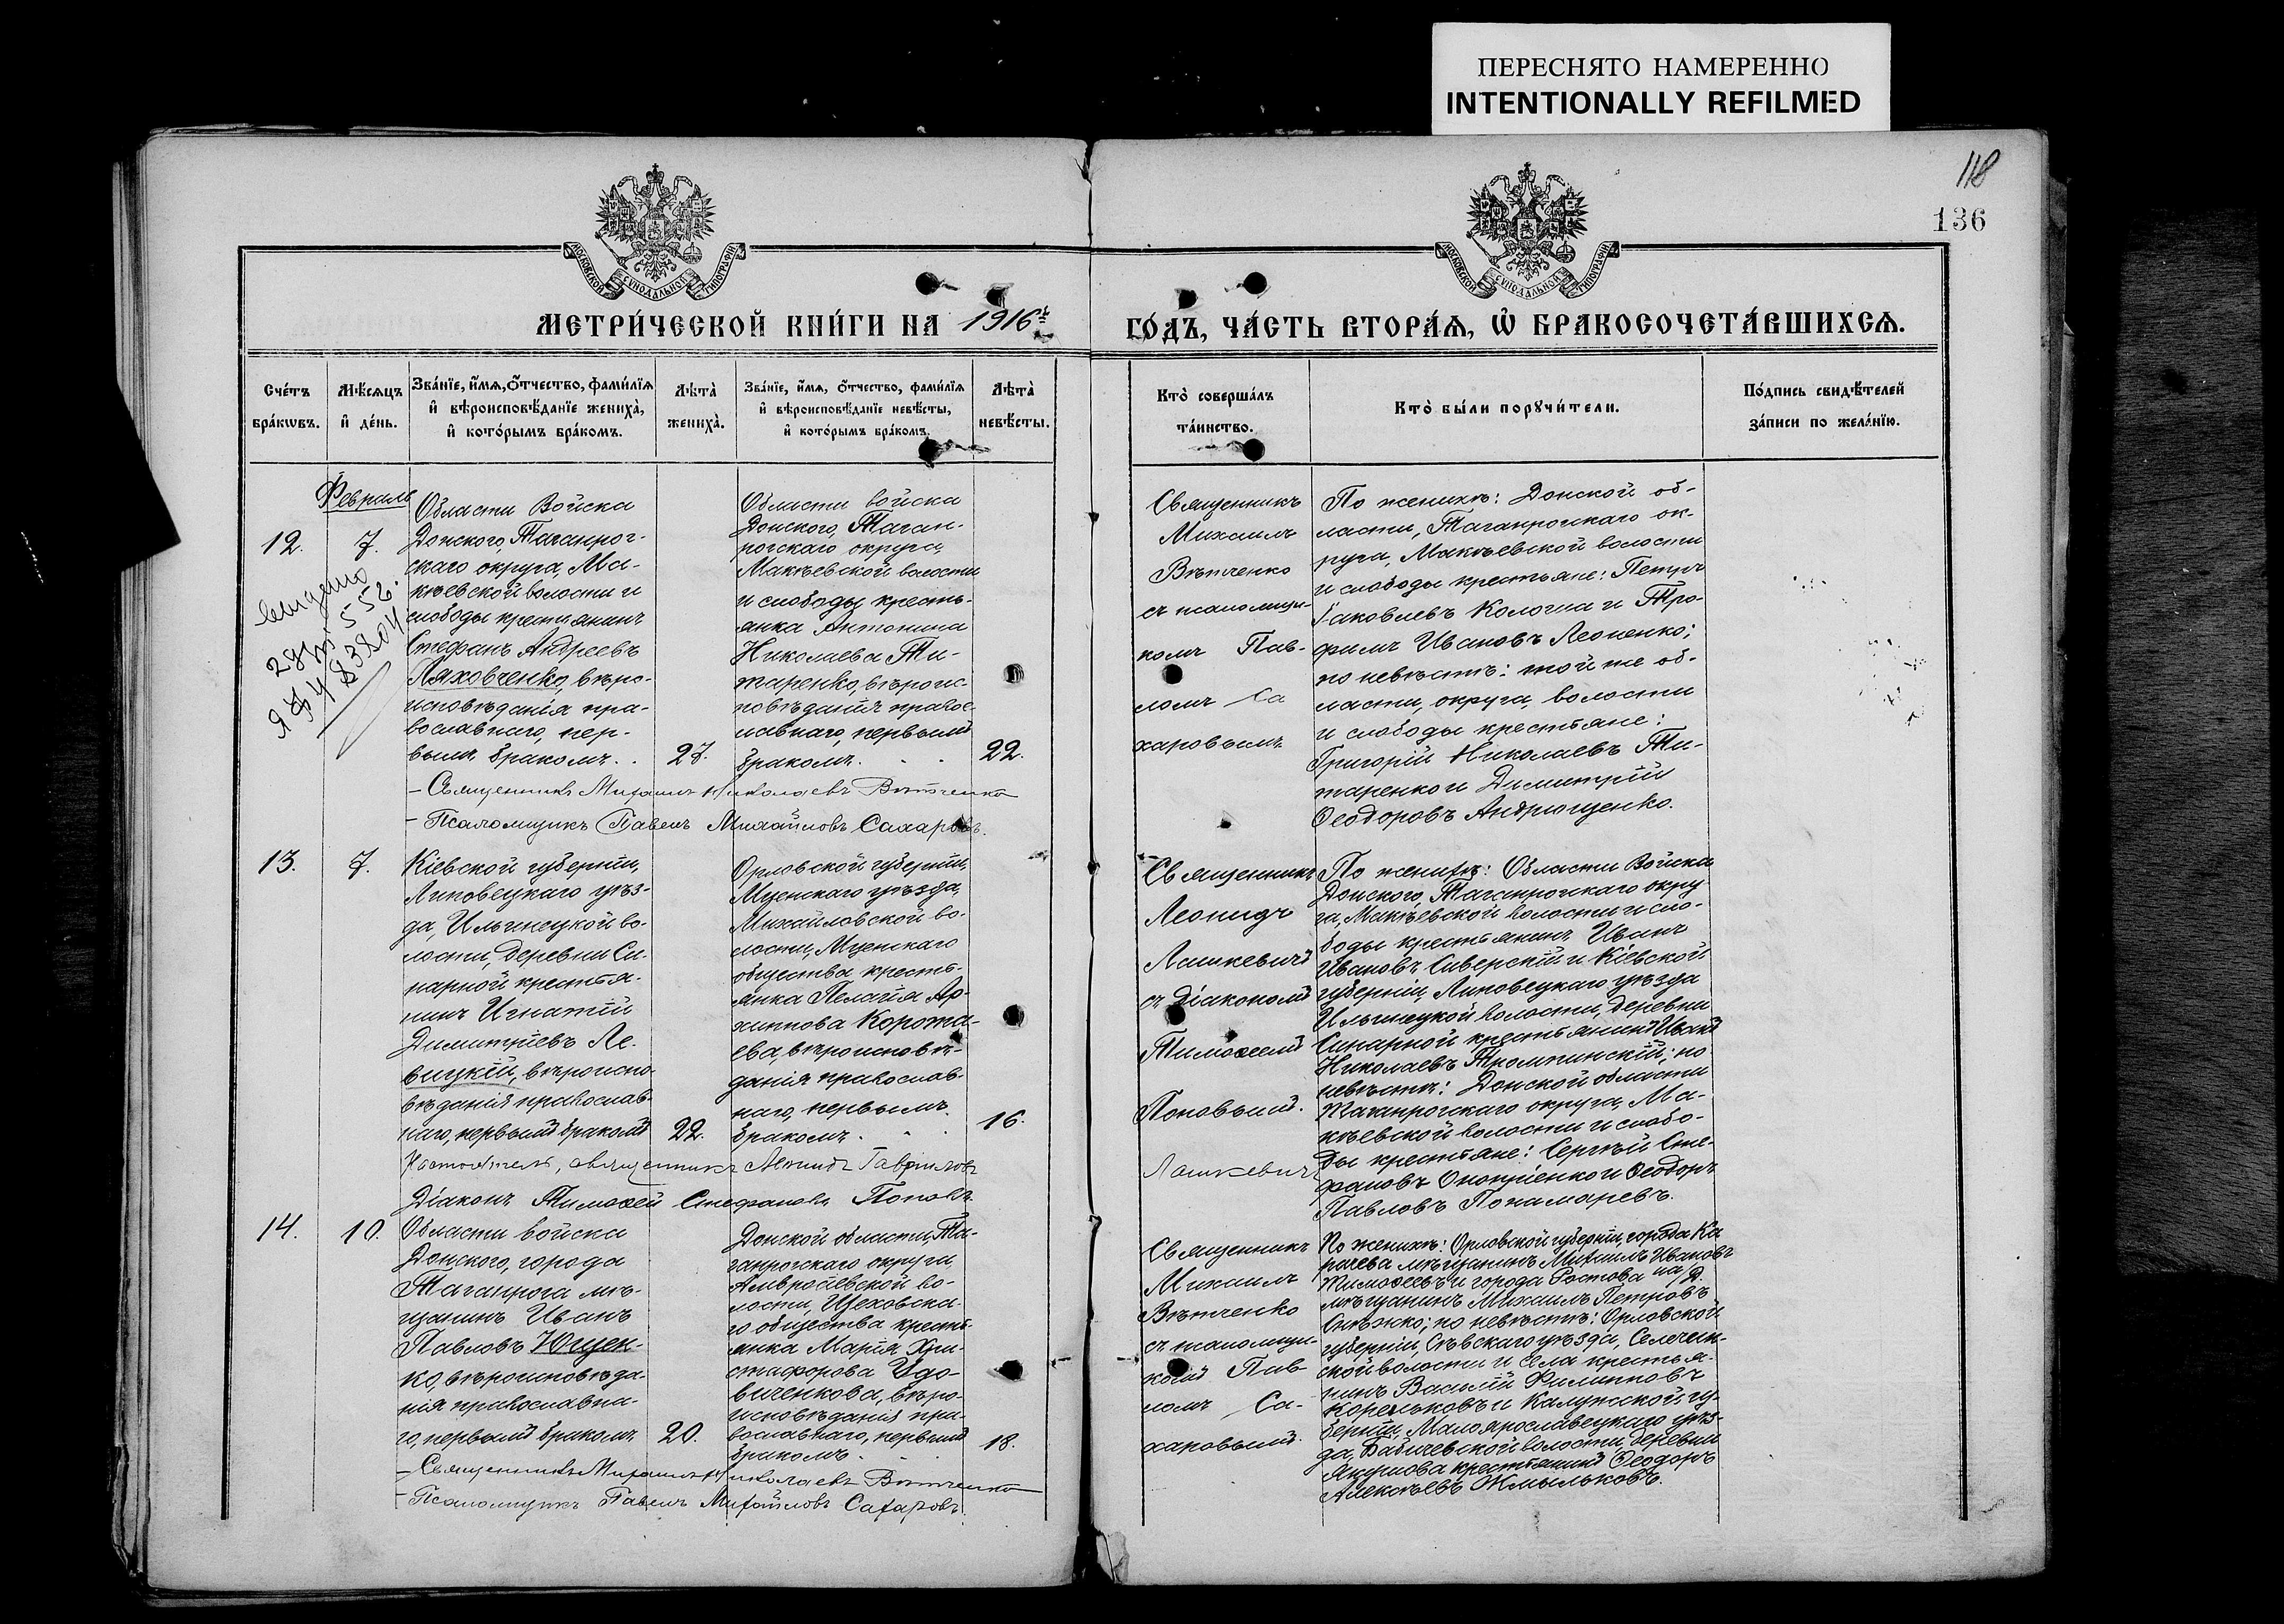 ПЕРЕСНЯТО НАМЕРЕННО
INTENTIONALLY REFILMED
118
136
МОСКОВСКОЙ СѴНОДАЛЬНОЙ ТИПОГРАФІИ
МОСКОВСКОЙ СѴНОДАЛЬНОЙ ТИПОГРАФІИ
МЕТРИ́ЧЕСКОЙ КНИ́ГИ НА 1916ъ
ГО́ДЪ, ЧА́СТЬ ВТОРА́Ѧ, Ѡ҆ БРАКОСОЧЕТА́ВШИХСѦ.
Сче́тъ
бра́кѡвъ.
Мѣ́сѧцъ
и҆ де́нь.
Зва́нїе, и҆́мѧ, ѻ҆́тчество, фами́лїѧ
и҆ вѣроисповѣ́данїе жениха̀,
и҆ кото́рымъ бра́комъ.
Лѣ̀та̀
жениха̀.
Зва́нїе, и҆́мѧ, ѻ҆́тчество, фами́лїѧ
и҆ вѣроисповѣ́данїе невѣ́сты,
и҆ кото́рымъ бра́комъ.
Лѣ̀та̀
невѣ́сты.
Кто̀ соверша́лъ
та́инство.
Кто̀ бы́ли порꙋчи́тели.
По́дпись свидѣ́телей
за́писи по жела́нїю.
Февраль
12.
7.
Области Войска
Донского, Таганрог-
скаго округа, Ма-
кѣевской волости и
слободы крестьянинъ
Стефанъ Андреевъ
Ляховченко, вѣро-
исповѣданія пра-
вославнаго, пер-
вымъ бракомъ. .
27.
Области войска
Донского, Таган-
рогскаго округа,
Макѣевской волости
и слободы кресть-
янка Антонина
Николаева Ти-
таренко, вѣроис-
повѣданія правос-
лавнаго, первымъ
бракомъ. . .
22.
Священникъ
Михаилъ
Вѣтченко
съ псаломщи-
комъ Пав-
ломъ Са
харовымъ
По женихѣ: Донской об-
ласти, Таганрогскаго ок-
руга, Макѣевской волости
и слободы крестьяне: Петръ
Іаковлевъ Колоша и Тро-
фимъ Ивановъ Леоненко;
по невѣстѣ: той же об-
ласти, округа, волости
и слободы крестьяне:
Григорій Николаевъ Ти-
таренко и Димитрій
Ѳеодоровъ Андрющенко.
- Священникъ Михаилъ Николаевъ Вѣтченко
- Псаломщикъ Павелъ Михайловъ Сахаровъ.
13.
7.
Кіевской губерніи,
Липовецкаго уѣз-
да, Ильинецкой во-
лости, деревни Си-
нарной крестья-
нинъ Игнатій
Димитріевъ Ле-
вицкій, вѣроиспо-
вѣданія православ-
наго, первымъ бракомъ
22.
Орловской губерніи,
Мценскаго уѣзда,
Михайловской во-
лости, Мценскаго
общества кресть-
янка Пелагія Ар-
хиппова Корота-
ева, вѣроисповѣ-
данія православ-
наго, первымъ
бракомъ. . .
16.
Священникъ
Леонидъ
Лашкевичъ
съ діакономъ
Тимоѳеемъ
Поповымъ.
По женихѣ: Области Войска
Донского, Таганрогскаго окру
га, Макѣевской волости и сло-
боды крестьянинъ Иванъ
Ивановъ Сиверскій и Кіевской
губерніи, Липовецкаго уѣзда
Ильинецкой волости, деревни
Синарной крестьянинъ Иванъ
Николаевъ Тромпинскій; по
невѣстѣ: Донской области
Таганрогскаго округа, Ма-
кѣевской волости и слобо-
ды крестьяне: Сергѣй Сте-
фановъ Оноприенко и Ѳеодоръ
Павловъ Понамаревъ.
Настоятель, священникъ Леонидъ Гавріиловъ Лашкевичъ
Діаконъ Тимоѳей Стефановъ Поповъ
14.
10.
Области войска
Донского, города
Таганрога мѣ-
щанинъ Иванъ
Павловъ Ющен-
ко, вѣроисповѣда-
нія православна-
го, первымъ бракомъ
20.
Донской области, Та-
ганрогскаго округа,
Амвросіевской во-
лости, Щеховска-
го общества кресть-
янка Марія Хри-
стофорова Удо-
виченкова, вѣро-
исповѣданія пра-
вославнаго, первымъ
бракомъ. . .
18.
Священникъ
Михаилъ
Вѣтченко
съ псаломщи-
комъ Пав-
ломъ Са-
харовымъ.
По женихѣ: Орловской губерніи, города Ка
рачева мѣщанинъ Михаилъ Ивановъ
Тимоѳеевъ и города Ростова на/Д.
мѣщанинъ Михаилъ Петровъ
Снѣжко; по невѣстѣ: Орловской
губерніи, Сѣвскаго уѣзда, Селечен-
ской волости и села крестья-
нинъ Василій Филипповъ
Корольковъ и Калужской гу-
берніи, Малоярославецкаго уѣз-
да, Бабичевской волости, деревни
крестьянинъ Ѳеодоръ
Алексѣевъ Жмыльковъ.
- Священникъ Михаилъ Николаевъ Вѣтченко
- Псаломщикъ Павелъ Михайловъ Сахаровъ.